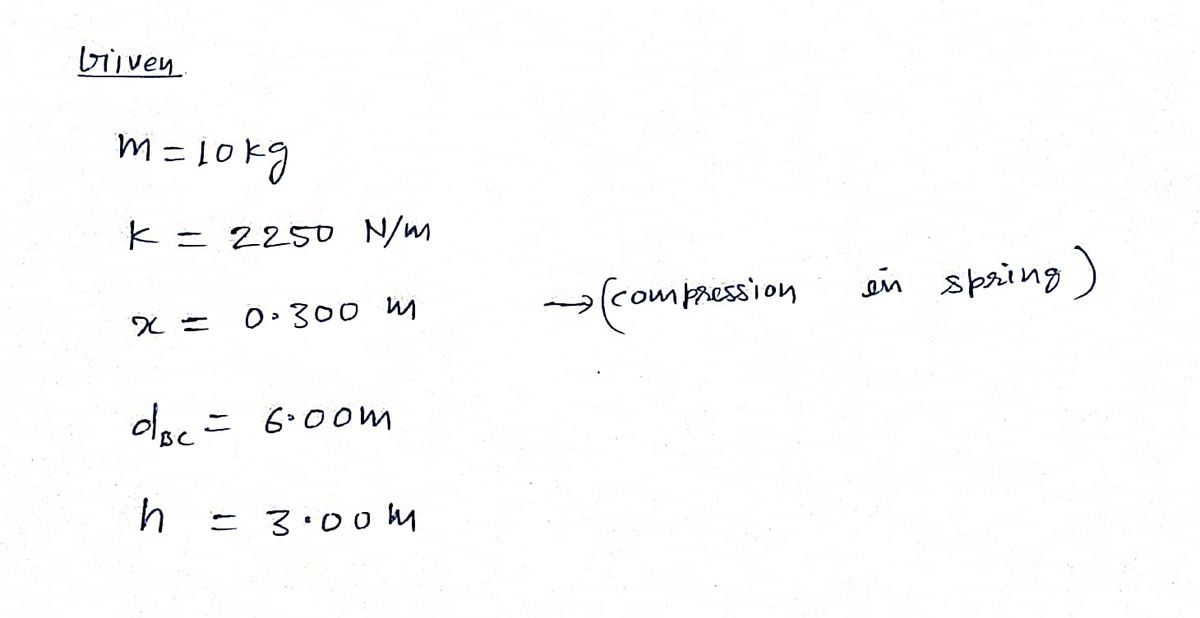 Given
m = 10 kg
k = 2250 N/m
x = 0.300 m → (compression in spring)
dBC = 6.00m
h = 3.00 m